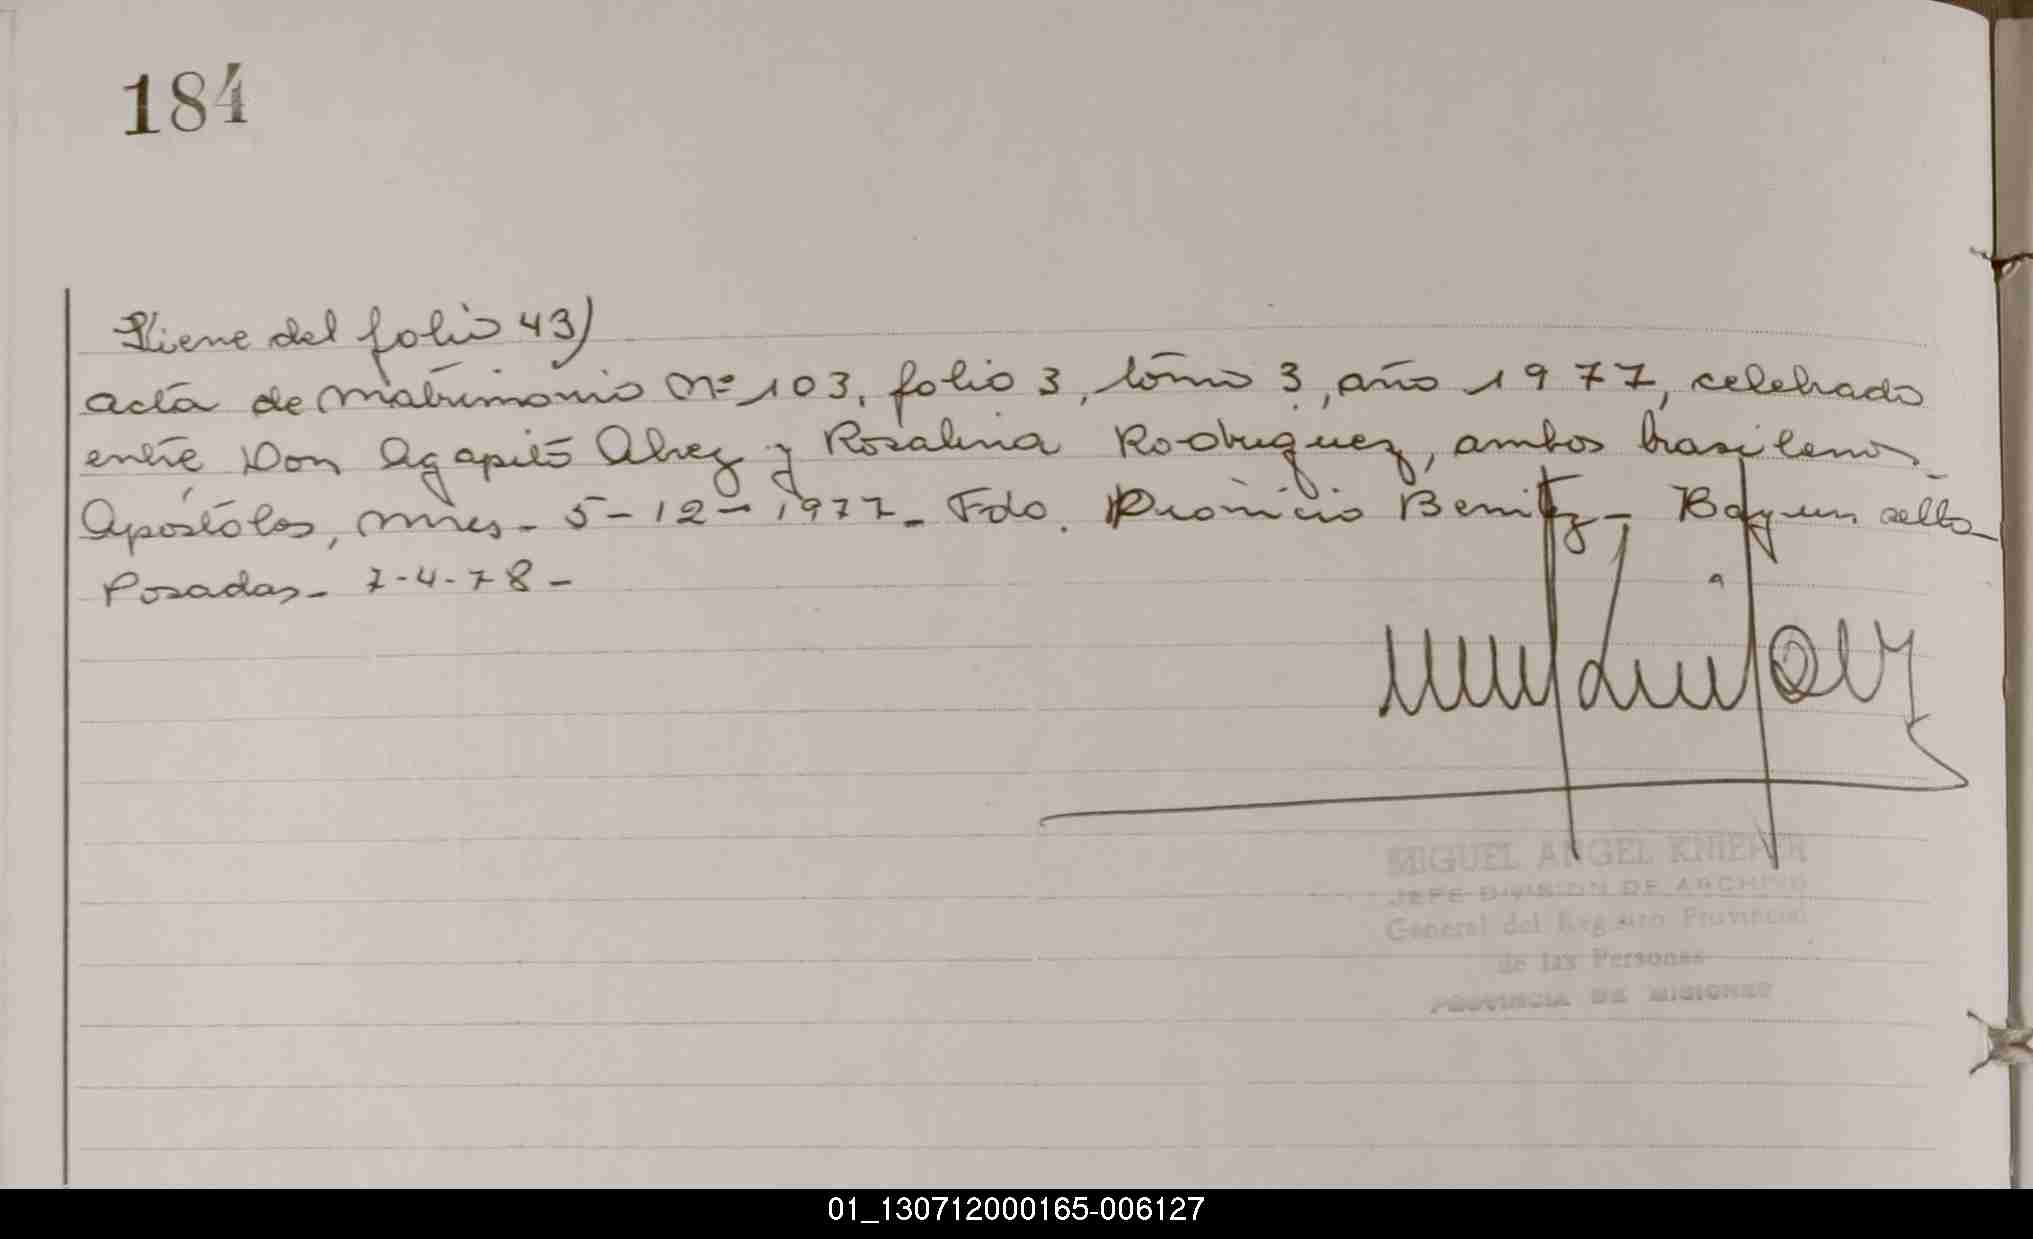 184
Viene del folio 43)
acta de matrimonio Nº 103, folio 3, tomo 3, año 1977, celebrado
entre Don Agapito Alvez y Rosalina Rodriguez, ambos brasilenos.
Apóstoles, mnes - 5-12-1977 - Fdo. Dionicio Benitez - Hay un sello -
Posadas - 7-4-78 -
MIGUEL ANGEL KNIEPER
JEFE DIVISION DE ARCHIVO
General del Registro Provincial
de las Personas
PROVINCIA DE MISIONES
01_130712000165-006127